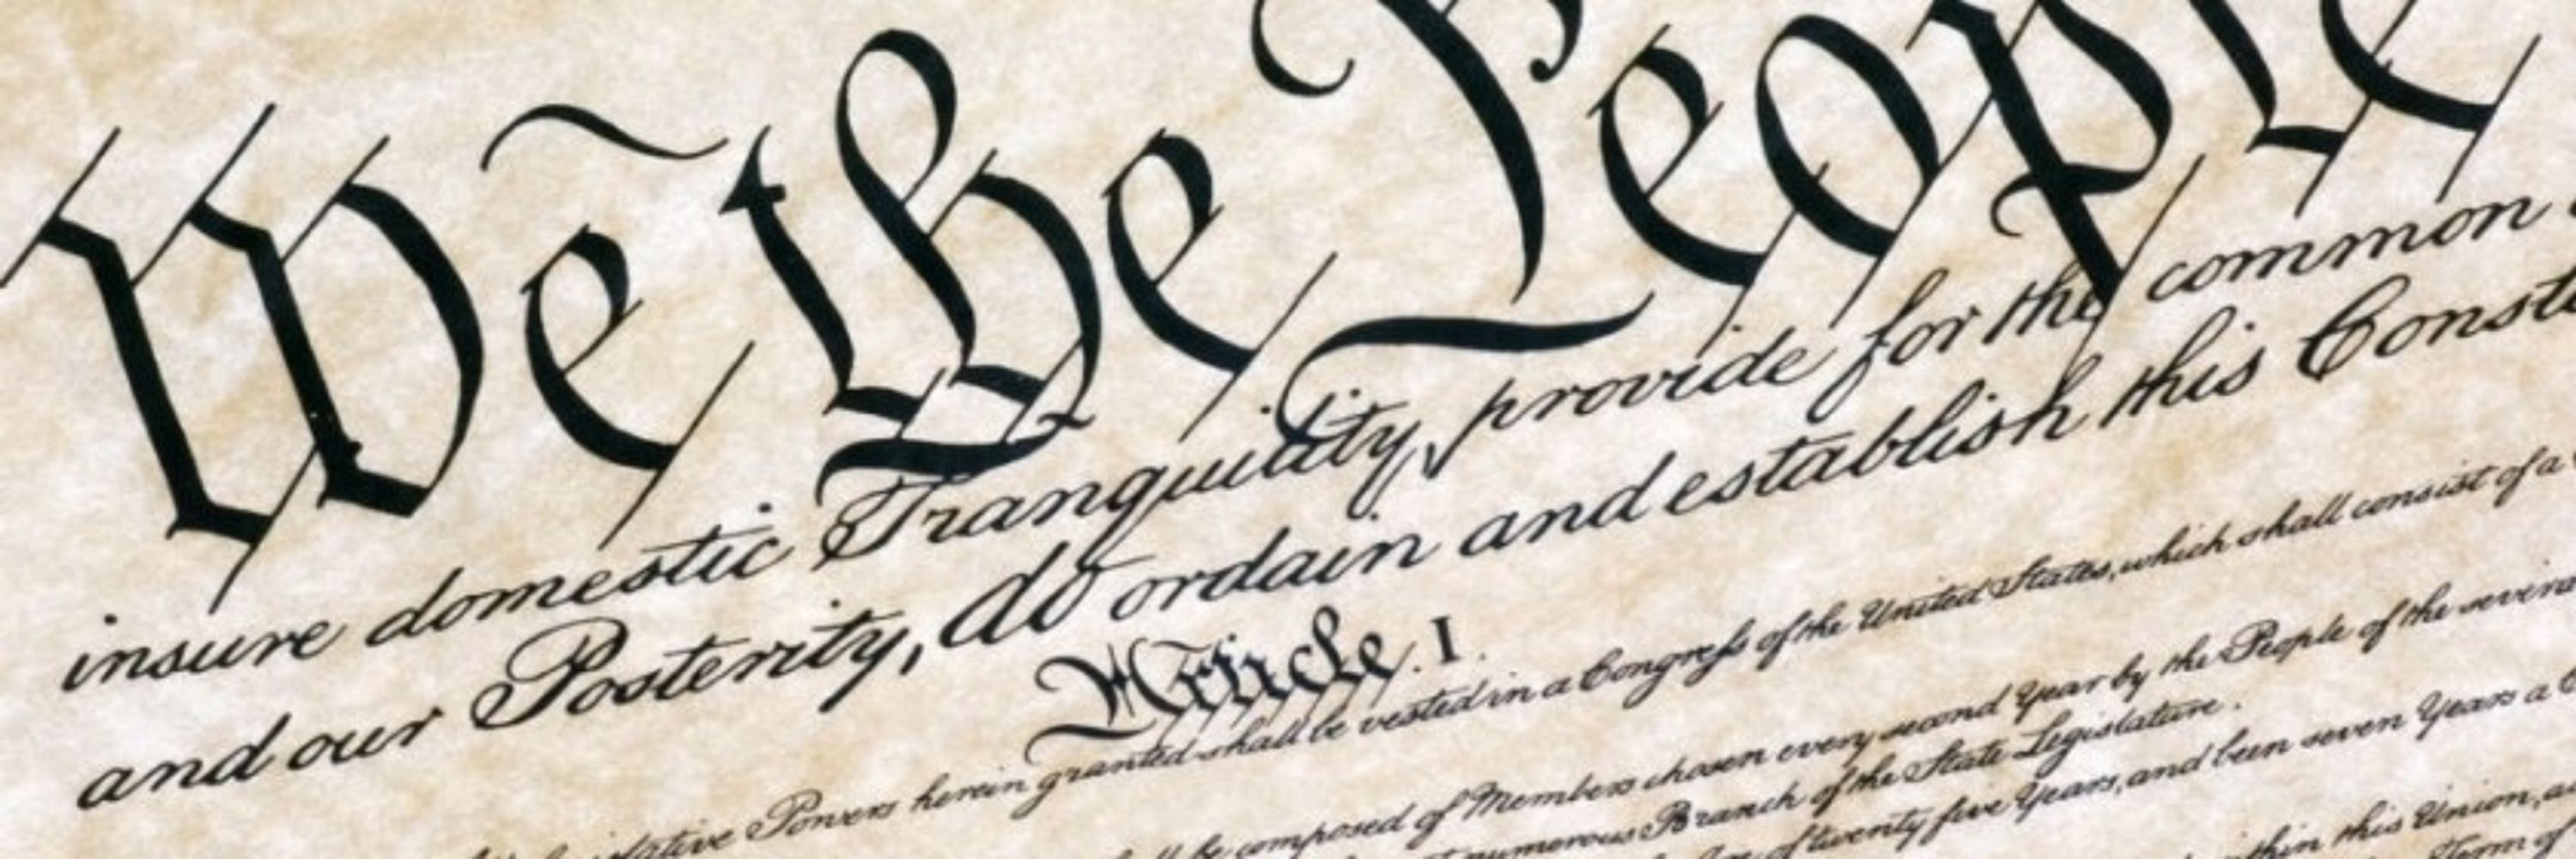 We the People
insure domestic Tranquility, provide for the common
and our Posterity, do ordain and establish this Const
Article. I.
Powers herein granted shall be vested in a Congress of the United States, which shall consist of a
be composed of Members chosen every second Year by the People of the several
numerous Branch of the State Legislature.
of twenty five Years, and been seven Years a
within this Union,
Term of